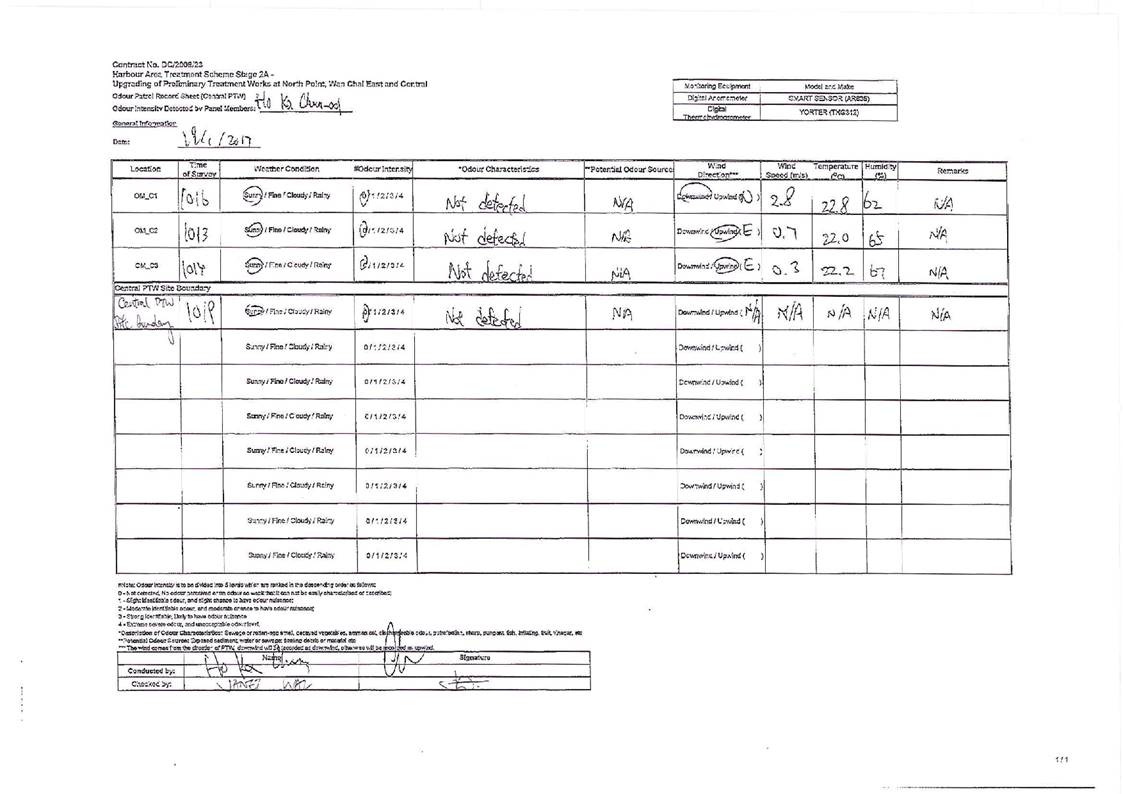 Contract No. DC/2009/23
Harbour Area Treatment Scheme Stage 2A -
Upgrading of Preliminary Treatment Works at North Point, Wan Chai East and Central
Odour Patrol Record Sheet (Central PTW)
Odour Intensity Detected by Panel Members: Ho Ka Chun
General Information
Date: /2017
Monitoring Equipment Model and Make
Digital Anemometer SMART SENSOR (AR836)
Digital Thermohydrometer YORTER (THG312)
Location Time of Survey Weather Condition #Odour Intensity *Odour Characteristics **Potential Odour Source Wind Direction*** Wind Speed (m/s) Temperature (°C) Humidity (%) Remarks
OM_C1 1016 Sunny / Fine / Cloudy / Rainy 0/1/2/3/4 Not detected N/A Downwind / Upwind ( ) 2.8 22.8 62 N/A
OM_C2 1013 Sunny / Fine / Cloudy / Rainy 0/1/2/3/4 Not detected N/A Downwind / Upwind (E) 0.7 22.0 65 N/A
OM_C3 1014 Sunny / Fine / Cloudy / Rainy 0/1/2/3/4 Not detected N/A Downwind / Upwind (E) 0.3 22.2 67 N/A
Central PTW Site Boundary
Central PTW Site Boundary 1019 Sunny / Fine / Cloudy / Rainy 0/1/2/3/4 Not detected N/A Downwind / Upwind (N/A) N/A N/A N/A N/A
Sunny / Fine / Cloudy / Rainy 0/1/2/3/4 Downwind / Upwind ( )
Sunny / Fine / Cloudy / Rainy 0/1/2/3/4 Downwind / Upwind ( )
Sunny / Fine / Cloudy / Rainy 0/1/2/3/4 Downwind / Upwind ( )
Sunny / Fine / Cloudy / Rainy 0/1/2/3/4 Downwind / Upwind ( )
Sunny / Fine / Cloudy / Rainy 0/1/2/3/4 Downwind / Upwind ( )
Sunny / Fine / Cloudy / Rainy 0/1/2/3/4 Downwind / Upwind ( )
Sunny / Fine / Cloudy / Rainy 0/1/2/3/4 Downwind / Upwind ( )
#Note: Odour intensity is to be divided into 5 levels which are ranked in the descending order as follows:
0 - Not detected, No odour perceived or an odour so weak that it can not be easily characterised or described;
1 - Slight identifiable odour, and slight chance to have odour nuisance;
2 - Moderate identifiable odour, and moderate chance to have odour nuisance;
3 - Strong identifiable, likely to have odour nuisance
4 - Extreme severe odour, and unacceptable odour level.
*Description of Odour Characteristics: Sewage or rotten-egg smell, decayed vegetables, ammonical, odour, putrefaction, sharp, pungent, fish, irritating, fruit, vinegar, etc
**Potential Odour Source: Exposed sediment, water or sewage; floating debris or material etc
*** The wind comes from the direction of PTW, downwind will be recorded as downwind, otherwise will be recorded as upwind.
Name Signature
Conducted by: Ho Ka Chun
Checked by: JANET WAI
1/1